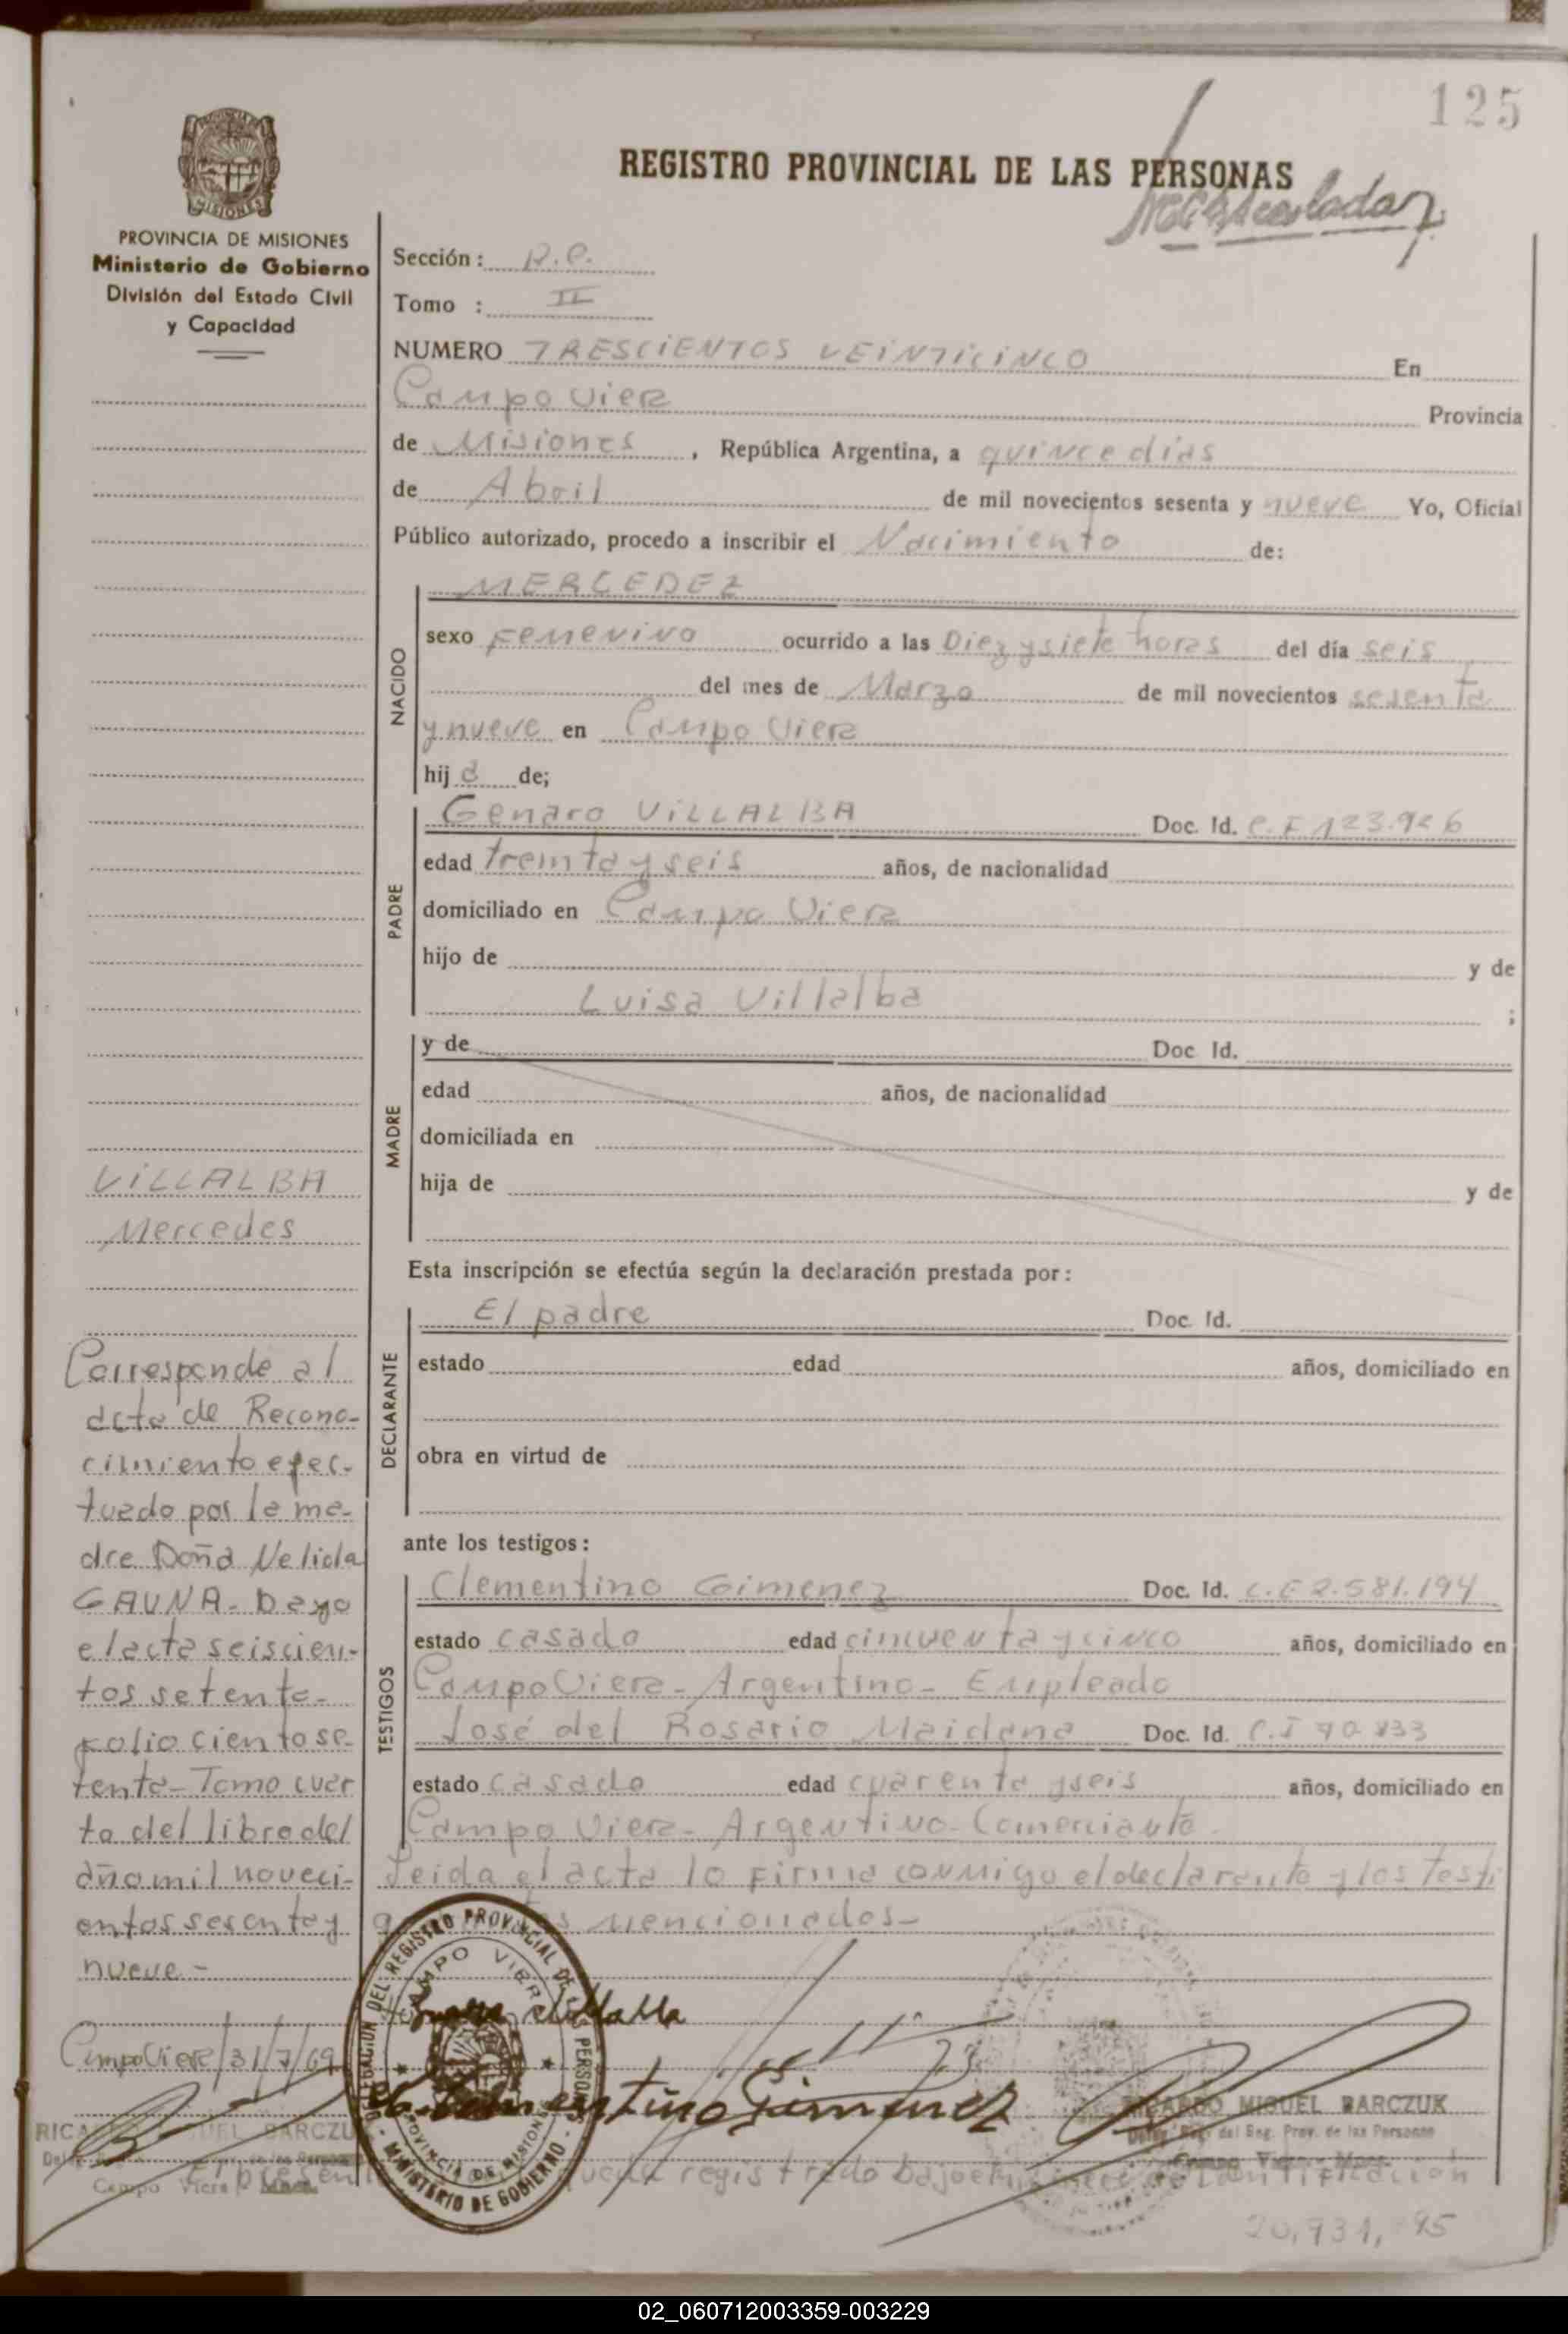 125
REGISTRO PROVINCIAL DE LAS PERSONAS
MISIONES
PROVINCIA DE MISIONES
Ministerio de Gobierno
División del Estado Civil
y Capacidad
Sección :
Tomo : II
NUMERO TRESCIENTOS VEINTICINCO En
Campo Viera Provincia
de Misiones, República Argentina, a quince dias
de Abril de mil novecientos sesenta y nueve Yo, Oficial
Público autorizado, procedo a inscribir el Nacimiento de:
NACIDO
MERCEDEZ
sexo Femenino ocurrido a las Diez y siete horas del día seis
del mes de Marzo de mil novecientos sesenta
y nueve en Campo Viera
hij a de;
PADRE
Genaro VILLALBA Doc. Id.
edad treinta y seis años, de nacionalidad
domiciliado en Campo Viera
hijo de y de
Luisa Villalba ;
MADRE
y de Doc Id.
edad años, de nacionalidad
domiciliada en
hija de y de
Esta inscripción se efectúa según la declaración prestada por :
DECLARANTE
El padre Doc. Id.
estado edad años, domiciliado en
obra en virtud de
ante los testigos :
TESTIGOS
Clementino Gimenez Doc. Id. C.E 2.581.194
estado casado edad cincuenta y cinco años, domiciliado en
Campo Viera - Argentino - Empleado
José del Rosario Maidana Doc. Id.
estado casado edad cuarenta y seis años, domiciliado en
Campo Viera - Argentino - Comerciante -
Leida el acta lo firma conmigo el declarante y los testi
mencionados -
VILLALBA
Mercedes
Corresponde al
acta de Recono-
cimiento efec-
tuado por la ma-
dre Doña Nelida
GAUNA - Bajo
el acta seiscien-
tos setenta -
folio ciento se-
tenta - Tomo cuar
to del libro del
año mil noveci-
entos sesenta y
nueve -
Campo Viera/31/7/69
DELEGACION DEL REGISTRO PROVINCIAL DE LAS PERSONAS
CAMPO VIERA
PROVINCIA DE MISIONES
MINISTERIO DE GOBIERNO
Clementino Gimenez
RICARDO MIGUEL BARCZUK
Campo Viera - Mnes.
RICARDO MIGUEL BARCZUK
Reg. Prov. de las Personas
Campo Viera - Mnes.
registrado bajo el identificacion
02_060712003359-003229